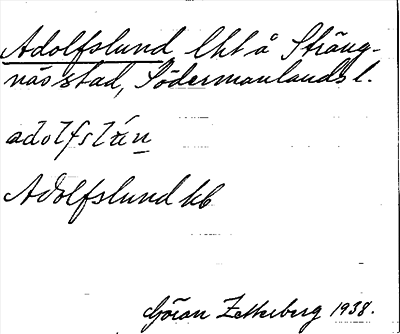 Adolfslund lht å Sträng-
näs stad, Södermanlands l.
adolfslán
Adolfslund kb
Göran Zetterberg 1938.